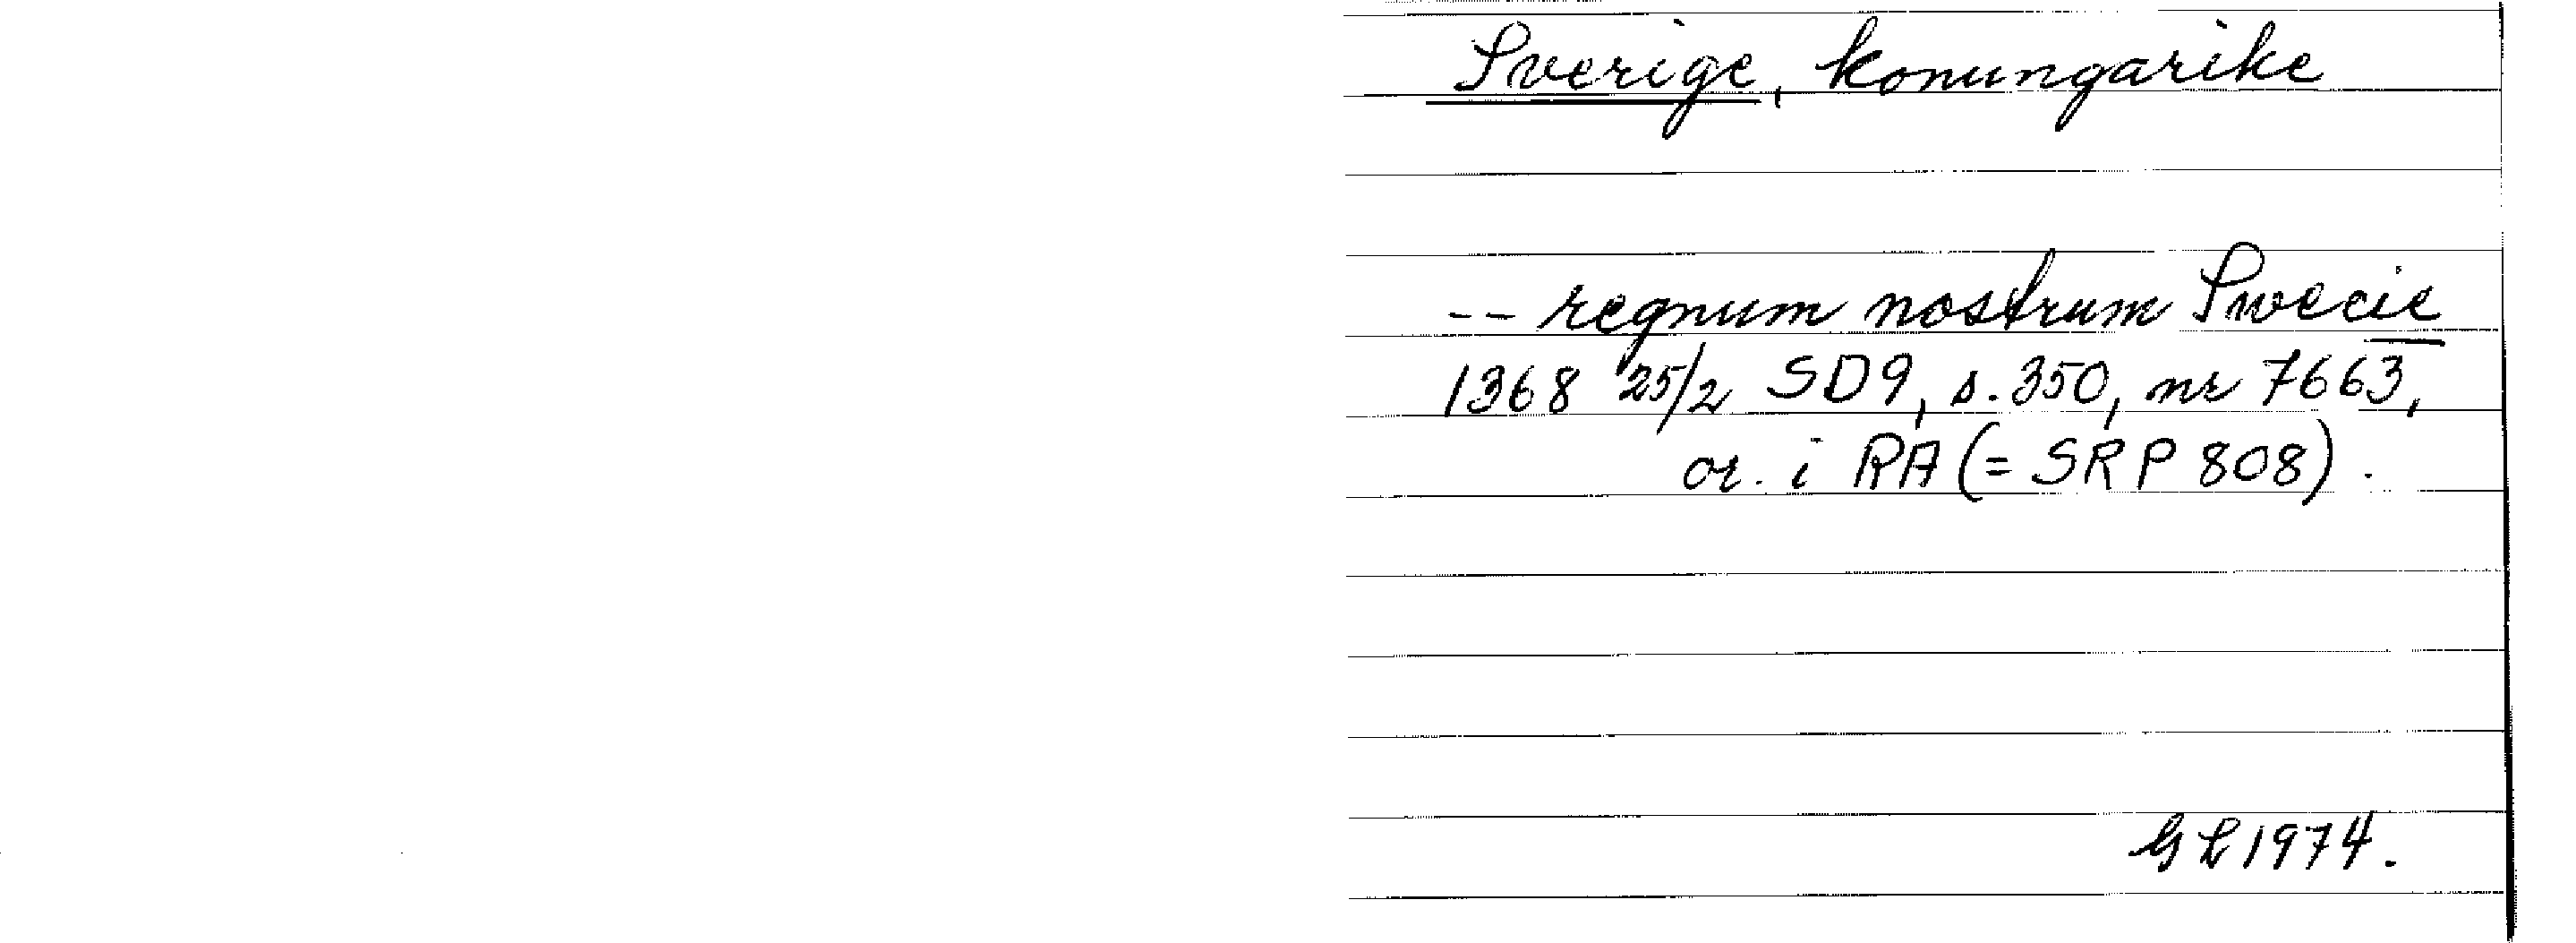 Sverige, konungarike
-- regnum nostrum Swecie
1368 25/2 SD9, s. 350, nr 7663,
or. i RA (= SRP 808).
GL 1974.